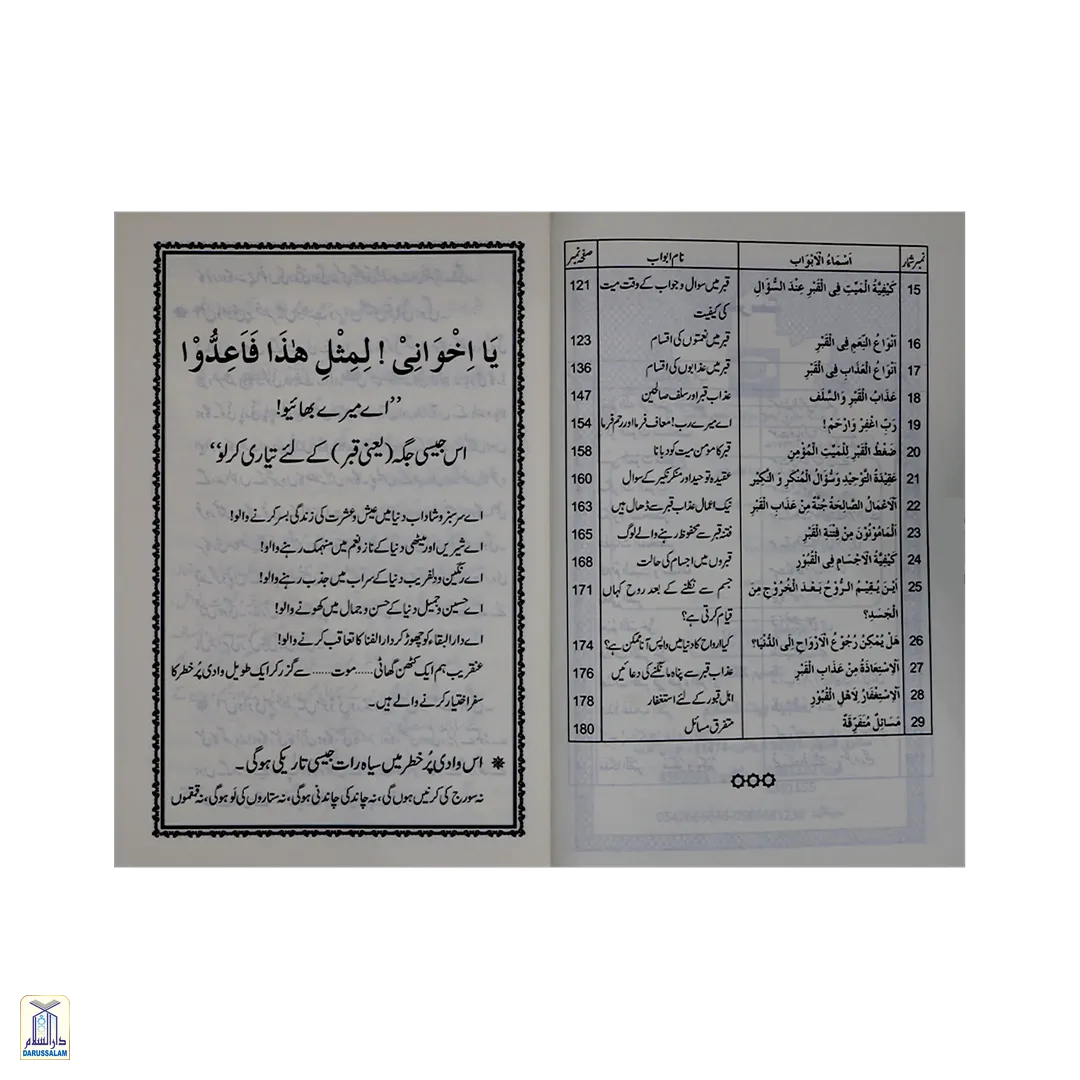 نمبر شمار اَسْمَاءُ الْاَبْوَاب نام ابواب صفحہ نمبر
15 كَيْفِيَّةُ الْمَيِّتِ فِي الْقَبْرِ عِنْدَ السُّؤَالِ قبر میں سوال و جواب کے وقت میت 121
کی کیفیت
16 اَنْوَاعُ النِّعَمِ فِي الْقَبْرِ قبر میں نعمتوں کی اقسام 123
17 اَنْوَاعُ الْعَذَابِ فِي الْقَبْرِ قبر میں عذابوں کی اقسام 136
18 عَذَابُ الْقَبْرِ وَالسَّلَف عذاب قبر اور سلف صالحین 147
19 رَبِّ اغْفِرْ وَارْحَمْ! اے میرے رب! معاف فرما اور رحم فرما 154
20 ضَغْطُ الْقَبْرِ لِلْمَيِّتِ الْمُؤْمِنِ قبر کا مومن میت کو دبانا 158
21 عَقِيْدَةُ التَّوْحِيْدِ وَسُؤَالُ الْمُنْكَرِ وَ النَّكِيْرِ عقیدہ توحید اور منکر نکیر کے سوال 160
22 اَلْاَعْمَالُ الصَّالِحَةُ جُنَّةٌ مِنْ عَذَابِ الْقَبْرِ نیک اعمال عذاب قبر سے ڈھال ہیں 163
23 اَلْمَاْمُوْنُوْنَ مِنْ فِتْنَةِ الْقَبْرِ فتنہ قبر سے محفوظ رہنے والے لوگ 165
24 كَيْفِيَّةُ الْاَجْسَامِ فِي الْقُبُوْرِ قبروں میں اجسام کی حالت 168
25 اَيْنَ يُقِيْمُ الرُّوْحُ بَعْدَ الْخُرُوْجِ مِنَ جسم سے نکلنے کے بعد روح کہاں 171
الْجَسَدِ؟ قیام کرتی ہے؟
26 هَلْ يُمْكِنُ رُجُوْعُ الْاَرْوَاحِ اِلَى الدُّنْيَا؟ کیا ارواح کا دنیا میں واپس آنا ممکن ہے؟ 174
27 اَلْاِسْتِعَاذَةُ مِنْ عَذَابِ الْقَبْرِ عذاب قبر سے پناہ مانگنے کی دعائیں 176
28 اَلْاِسْتِغْفَارُ لِاَهْلِ الْقُبُوْرِ اہل قبور کے لئے استغفار 178
29 مَسَائِلُ مُتَفَرِّقَةٌ متفرق مسائل 180
يَا اِخْوَانِيْ ! لِمِثْلِ هٰذَا فَاَعِدُّوْا
”اے میرے بھائیو!
اس جیسی جگہ (یعنی قبر) کے لئے تیاری کر لو“
اے سرسبز و شاداب دنیا میں عیش و عشرت کی زندگی بسر کرنے والو!
اے شیریں اور میٹھی دنیا کے ناز و نعم میں منہمک رہنے والو!
اے رنگین و دلفریب دنیا کے سراب میں جذب رہنے والو!
اے حسین و جمیل دنیا کے حسن و جمال میں کھونے والو!
اے دار البقاء کو چھوڑ کر دار الفنا کا تعاقب کرنے والو!
عنقریب ہم ایک کٹھن گھاٹی...... موت...... سے گزر کر ایک طویل وادی پُر خطر کا
سفر اختیار کرنے والے ہیں۔
اس وادی پُر خطر میں سیاہ رات جیسی تاریکی ہوگی۔
نہ سورج کی کرنیں ہوں گی، نہ چاند کی چاندنی ہوگی، نہ ستاروں کی لَو ہوگی، نہ قمقموں
دار السلام
DARUSSALAM